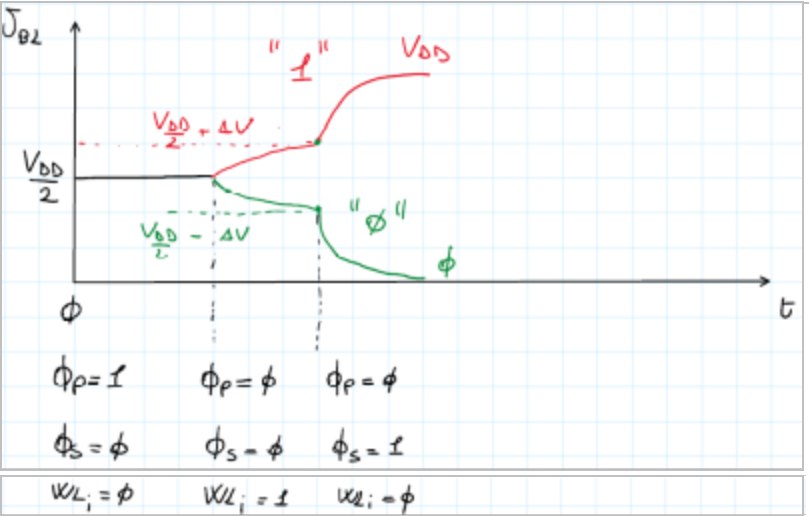 V_BL
"1" V_DD
V_DD/2 + ΔV
V_DD/2
"ϕ"
V_DD/2 - ΔV
ϕ
ϕ t
ϕ_P = 1 ϕ_P = ϕ ϕ_P = ϕ
ϕ_S = ϕ ϕ_S = ϕ ϕ_S = 1
WL_i = ϕ WL_i = 1 WL_i = ϕ